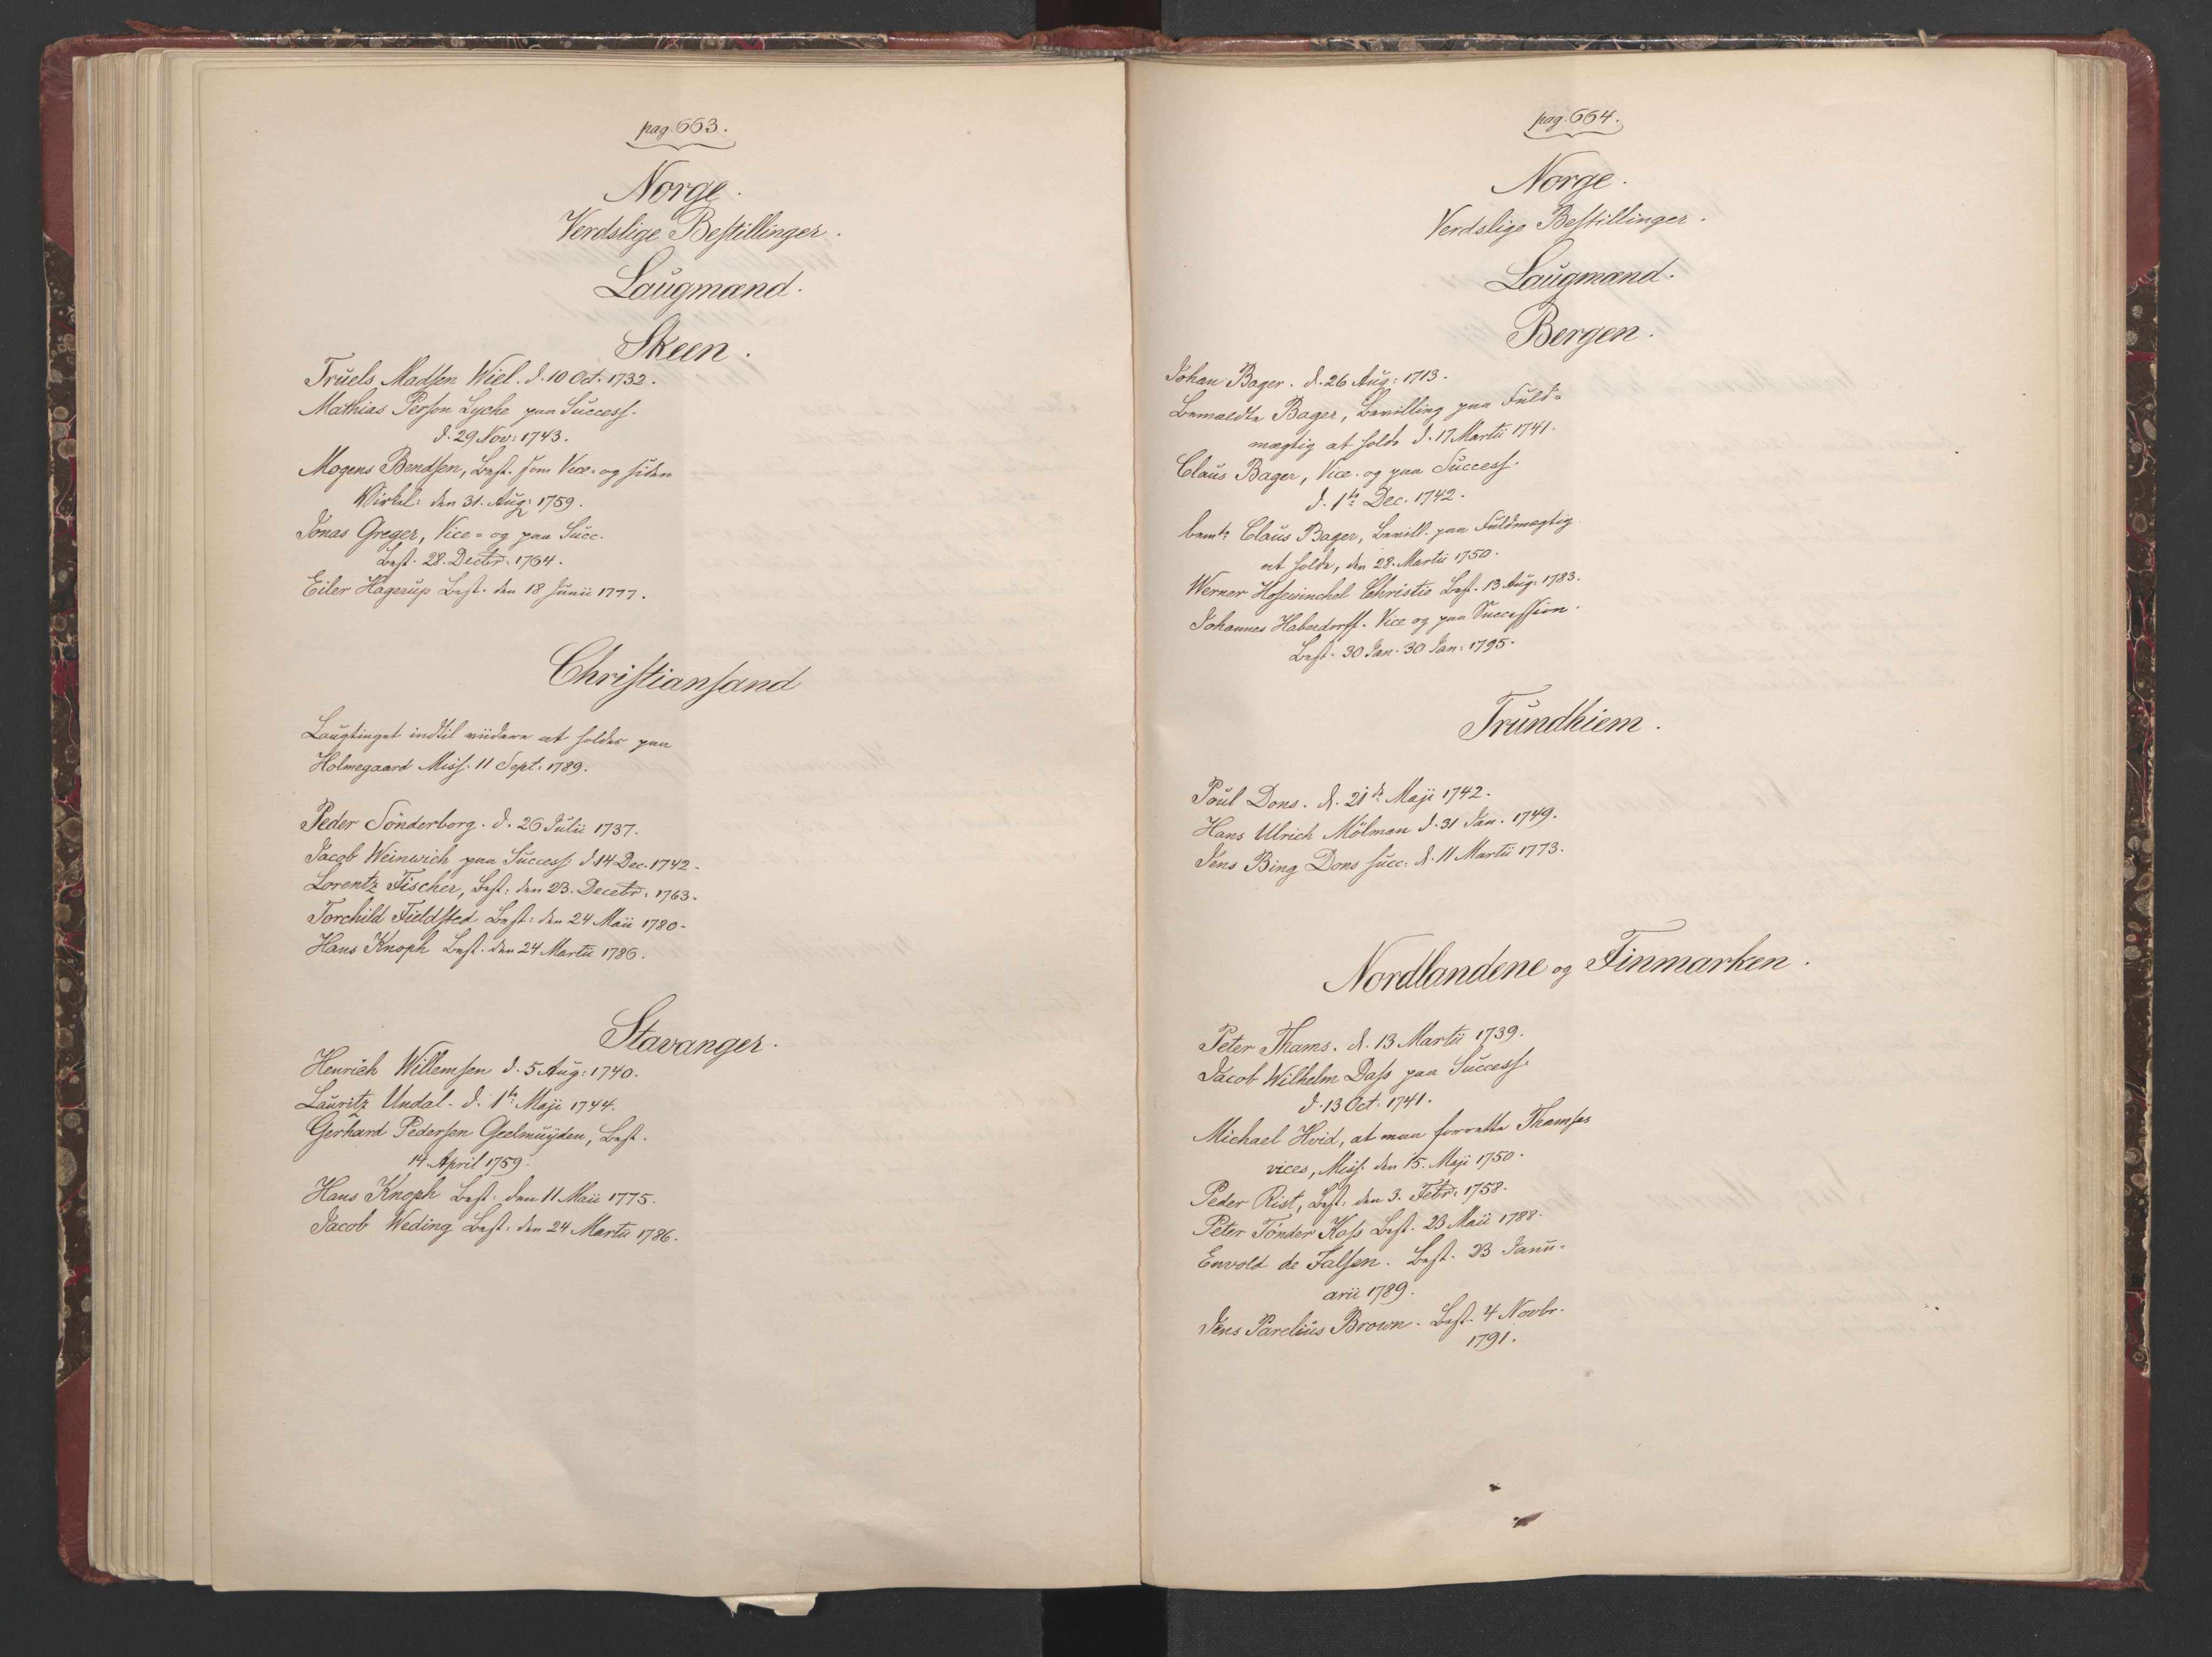 pag. 663.
Norge.
Verdslige Bestillinger.
Laugmænd.
Skeen.
Truels Madsen Wiel. d. 10 Oct. 1732.
Mathias Person Lyche paa Success.
d. 29 Nov: 1743.
Mogens Bendsen, Best. som Vice- og siden
Wirkel: den 31. Aug: 1759.
Jonas Greger, Vice- og paa Succ.
Best. 28. Decbr. 1764.
Eiler Hagerup Best. den 18 Junii 1777.
Christiansand
Laugtinget indtil viidere at holdes paa
Holmegaard Miss. 11 Sept. 1789.
Peder Sönderborg. d. 26 Julii 1737.
Jacob Weinwich paa Success: d. 14 Dec. 1742.
Lorentz Fischer, Best: den 23. Decebr. 1763.
Torchild Fieldsted Best: den 24 Maii 1780.
Hans Knoph Best. den 24 Martii 1786.
Stavanger.
Henrich Willemsen d. 5 Aug: 1740.
Lauritz Undal. d. 1te Maji 1744.
Gerhard Pedersen Geelmuyden, Best.
14 April 1759.
Hans Knoph Best: den 11 Maii 1775.
Jacob Weding Best. den 24 Martii 1786.
pag. 664.
Norge.
Verdslige Bestillinger.
Laugmænd.
Bergen.
Johan Bager. d. 26 Aug: 1713.
Bemældte Bager, Bevilling paa Fuld=
mægtig at holde d. 17 Martii 1741.
Claus Bager, Vice- og paa Success.
d. 1te Dec. 1742.
bemte Claus Bager, Bevill. paa Fuldmægtig
at holde, den 28. Martii 1750.
Werner Hosewinchel Christie Best. 13 Aug: 1783.
Johannes Haberdorff. Vice og paa Succession.
Best. 30 Jan. 30 Jan: 1795.
Trundhiem.
Poul Dons. d. 21de Maji 1742.
Hans Ulrich Mölman d. 31 Jan. 1749.
Jens Bing Dons succ: d. 11 Martii 1773.
Nordlandene og Finmarken.
Peter Thams. d. 13 Martii 1739.
Jacob Wilhelm Dass paa Success.
d. 13 Oct. 1741.
Michael Hvid, at maa forrette Thamses
vices, Miss. den 15. Maji 1750.
Peder Rist, Best: den 3. Febr. 1758.
Peter Tönder Kass Best. 23 Maii 1788.
Envold de Falsen. Best. 23 Janu-
arii 1789.
Jens Parelius Brown. Best. 4 Novbr.
1791.